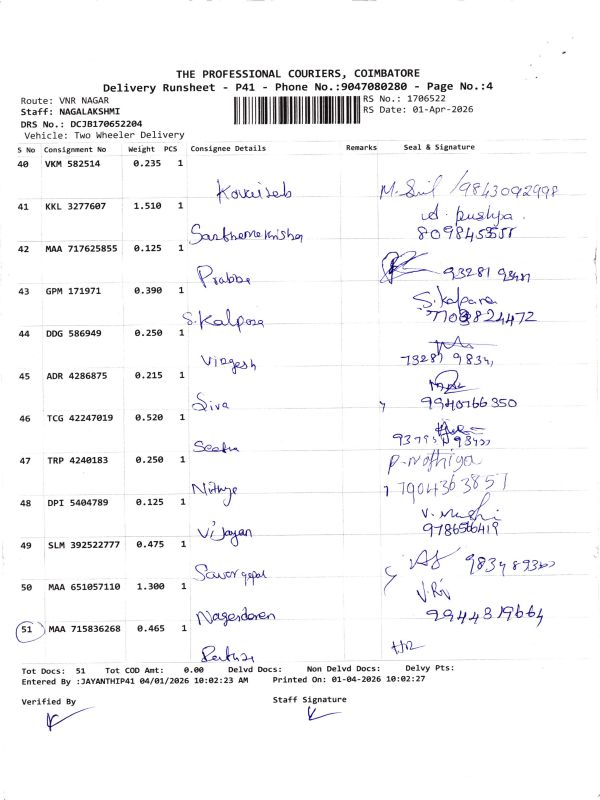 THE PROFESSIONAL COURIERS, COIMBATORE
Delivery Runsheet - P41 - Phone No.:9047080280 - Page No.:4
Route: VNR NAGAR
RS No.: 1706522
Staff: NAGALAKSHMI
RS Date: 01-Apr-2026
DRS No.: DCJB170652204
Vehicle: Two Wheeler Delivery
S No Consignment No Weight PCS Consignee Details Remarks Seal & Signature
40 VKM 582514 0.235 1
M. /9843092998
41 KKL 3277607 1.510 1
42 MAA 717625855 0.125 1
Prabha
43 GPM 171971 0.390 1
S. Kalpana
S. Kalpana
7708824472
44 DDG 586949 0.250 1
45 ADR 4286875 0.215 1
Siva
9940766350
46 TCG 42247019 0.520 1
47 TRP 4240183 0.250 1
P. Nathiya
Nithya
7904363857
48 DPI 5404789 0.125 1
Vijayan
49 SLM 392522777 0.475 1
50 MAA 651057110 1.300 1
9944819664
51 MAA 715836268 0.465 1
Tot Docs: 51 Tot COD Amt: 0.00 Delvd Docs: Non Delvd Docs: Delvy Pts:
Entered By :JAYANTHIP41 04/01/2026 10:02:23 AM Printed On: 01-04-2026 10:02:27
Verified By
Staff Signature